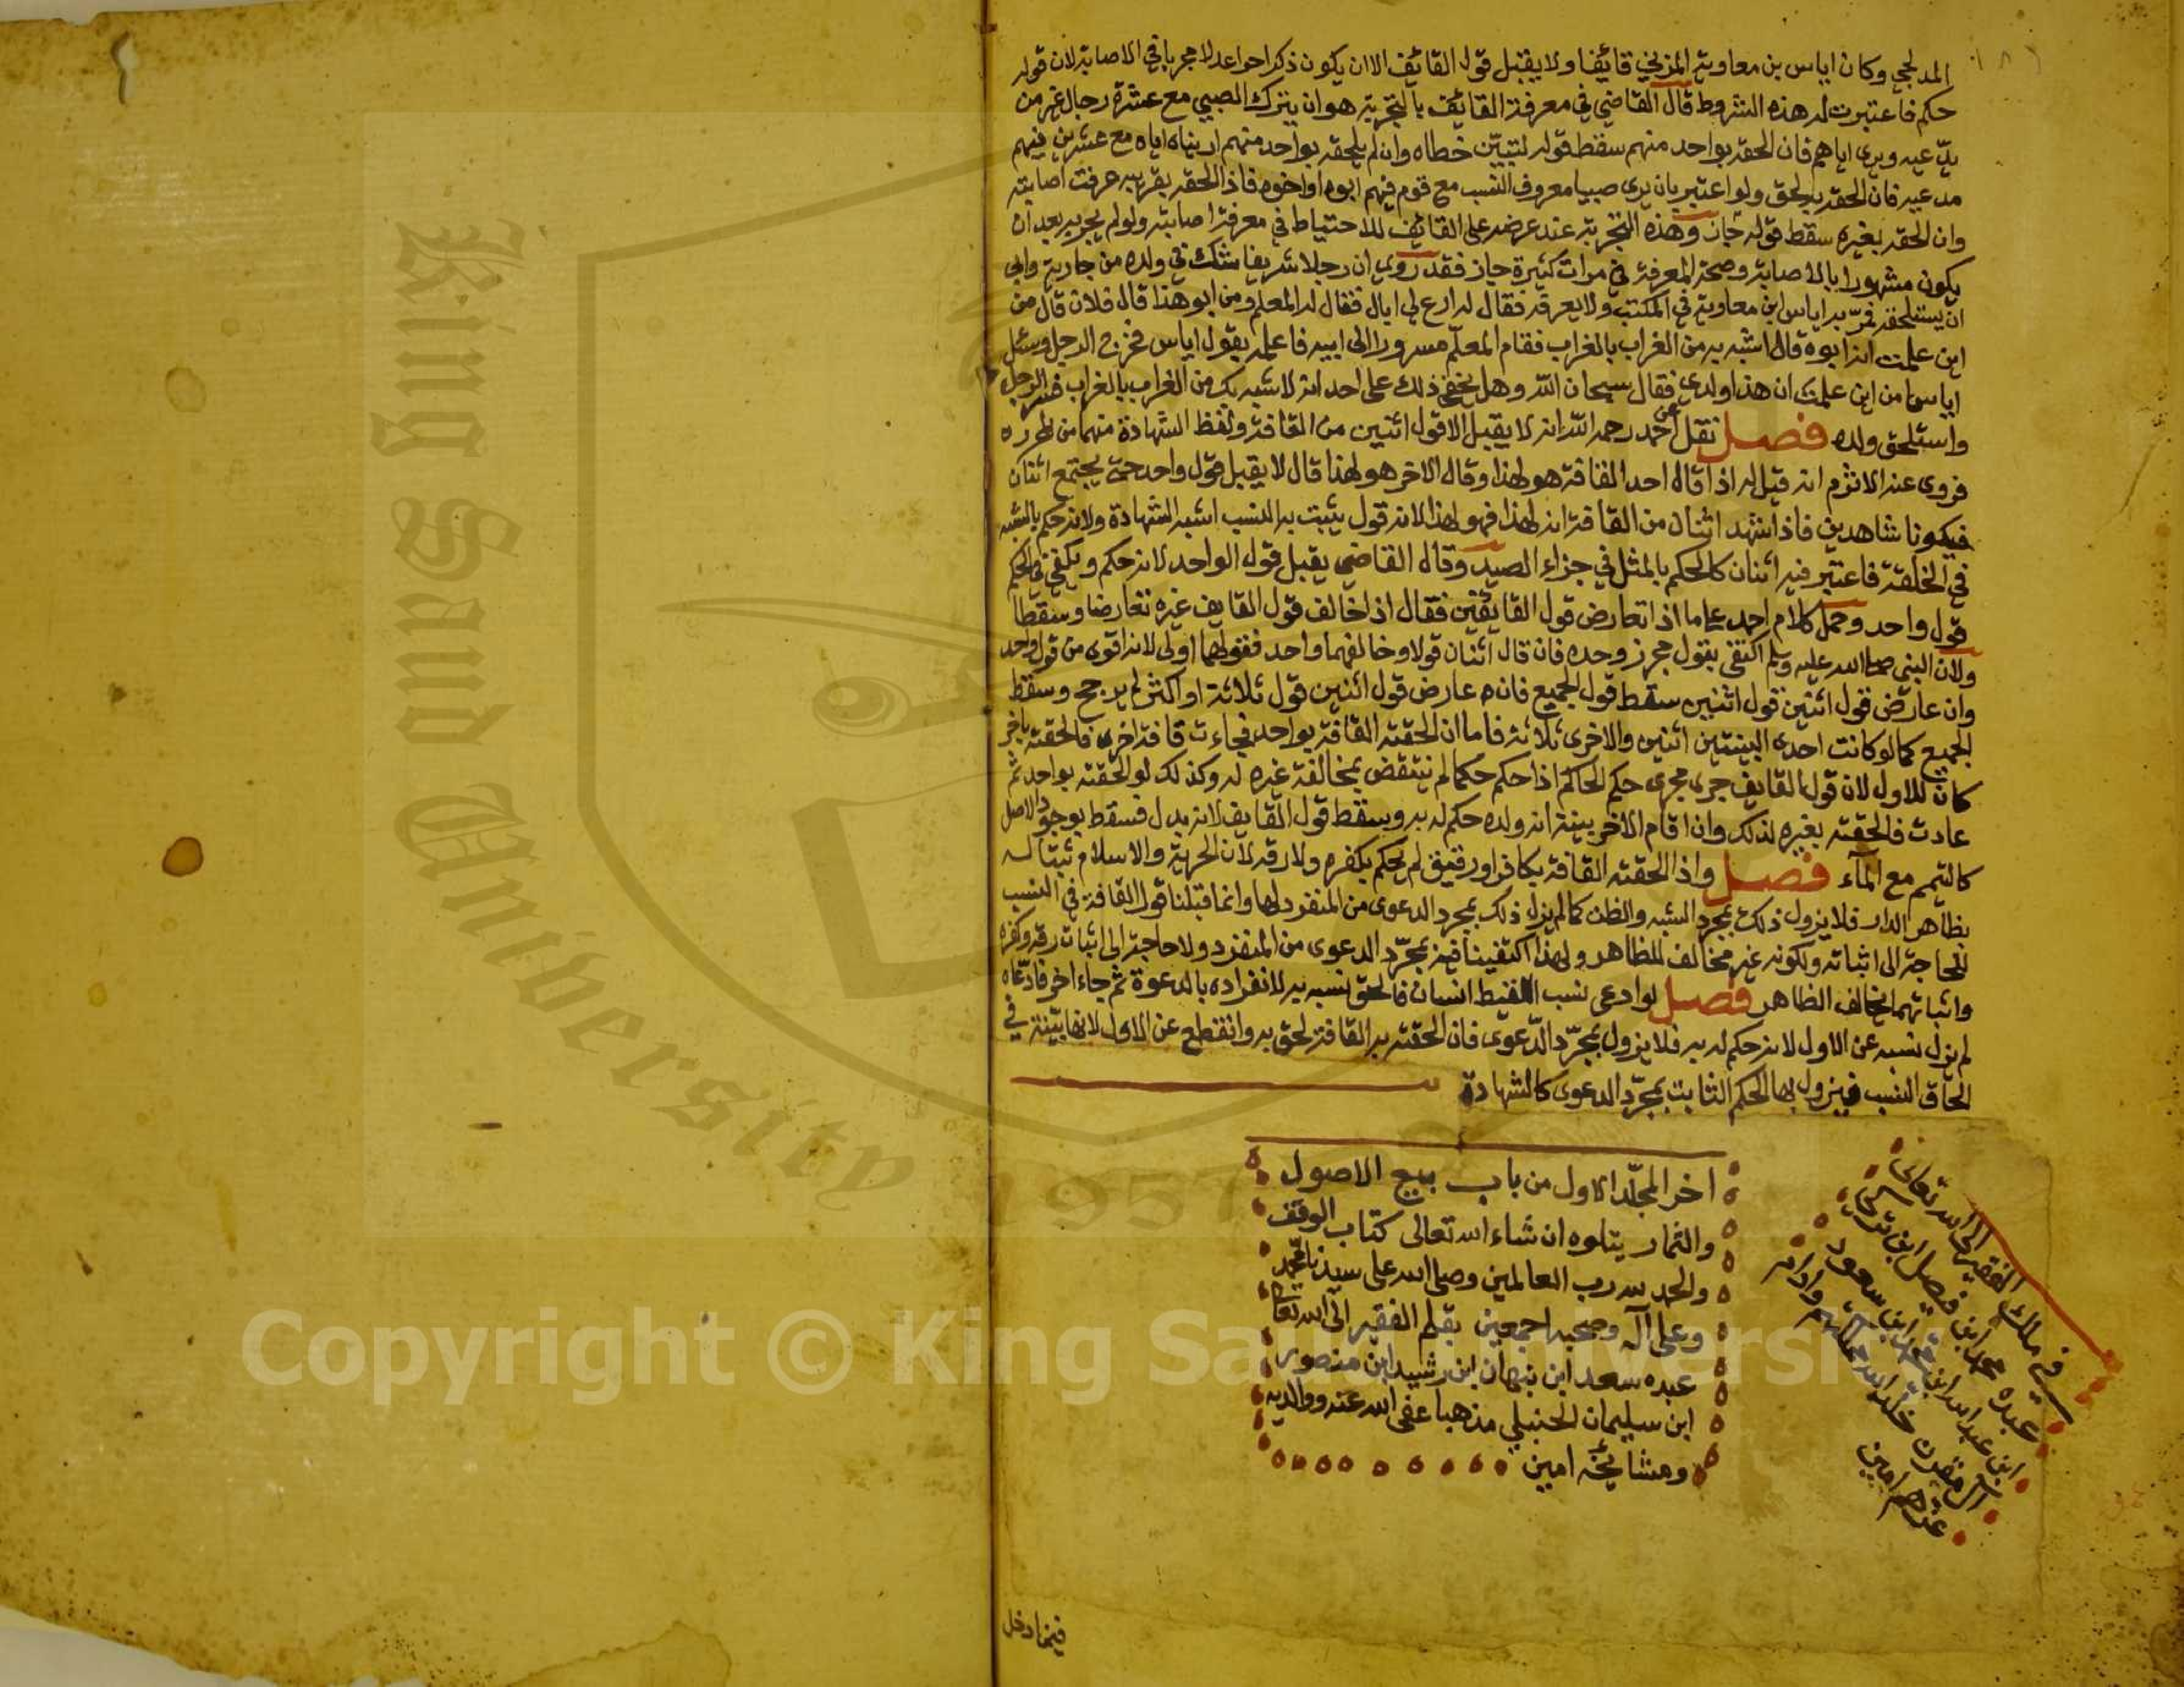 المدلجي وكان اياس بن معاوية المزني قائفا ولا يقبل قول القائف الا ان يكون ذكرا حرا عدلا مجربا في الاصابة لان قوله
حكم فاعتبرت له هذه الشروط قال القاضي في معرفة القائف بالتجربة هو ان يترك الصبي مع عشرة رجال غير من
يدّعيه ويرى اياهم فان الحقه بواحد منهم سقط قوله لتبيّن خطاه وان لم يلحقه بواحد منهم اريناه اياه مع عشرين فيهم
مدعيه فان الحقه به لحق ولو اعتبر بان يرى صبيا معروف النسب مع قوم فيهم ابوه او اخوه فاذا الحقه بقريبه عرفت اصابته
وان الحقه بغيره سقط قوله جاز وهذه التجربة عند عرضه على القائف للاحتياط في معرفة اصابته ولو لم يجربه بعد ان
يكون مشهورا بالاصابة وصحة المعرفة في مرات كثيرة جاز فقد روي ان رجلا شريفا شك في ولده من جارية وابى
ان يستلحقه فمرّ به اياس ابن معاوية في المكتب ولا يعرفه فقال له ادع لي اباك فقال له المعلم ومن ابو هذا قال فلان قال من
اين علمت انه ابوه قال اشبه به من الغراب بالغراب فقام المعلّم مسرورا الى ابيه فاعلمه بقول اياس فخرج الرجل وسئل
اياسا من اين علمت ان هذا ولدي فقال سبحان الله وهل يخفى ذلك على احد انه لاشبه بك من الغراب بالغراب فسر الرجل
واستلحق ولده فصل نقل عن احمد رحمه الله انه لا يقبل الا قول اثنين من القافة ولفظ الشهادة منهما من المحرره
فروى عنه الاثرم انه قيل له اذا قال احد القافة هو لهذا وقال الاخر هو لهذا قال لا يقبل قول واحد حتى يجتمع اثنان
فيكونا شاهدين فاذا شهد اثنان من القافة انه لهذا فهو لهذا لانه قول يثبت به النسب اشبه الشهادة ولانه حكم بالشبه
في الخلقة فاعتبر فيه اثنان كالحكم بالمثل في جزاء الصيد وقال القاضي يقبل قول الواحد لانه حكم ويكفي في الحكم
قول واحد وحمل كلام احمد على ما اذا تعارض قول القائفين فقال اذا خالف قول القايف غيره تعارضا وسقطا
ولان النبي صلى الله عليه وسلم اكتفى بقول مجزز وحده فان قال اثنان قولا وخالفهما واحد فقولهما اولى لانه اقوى من قول واحد
وان عارض قول اثنين قول اثنين سقط قول الجميع فان عارض قول اثنين قول ثلاثة او اكثر لم يرجح وسقط
الجميع كما لو كانت احدى البينتين اثنين والاخرى ثلاثة فاما ان الحقته القافة بواحد فجاءت قافة اخرى فالحقته باخر
كان للاول لان قول القايف جرى مجرى حكم الحاكم اذا حكم حكما لم ينتقض بمخالفة غيره له وكذلك لو الحقته بواحد ثم
عادت فالحقته بغيره لذلك وان اقام الاخر بينة انه ولده حكم له به وسقط قول القايف لانه بدل فسقط بوجود الاصل
كالتيمم مع المآء فصل واذا الحقته القافة بكافر او رقيق لم يحكم بكفره ولا رقه لان الحرية والاسلام ثبتا له
بظاهر الدار فلا يزول ذلك بمجرد الشبه والظن كما لم يزل ذلك بمجرد الدعوى من المنفرد بها وانما قبلنا قول القافة في النسب
للحاجة الى اثباته ولكونه غير مخالف للظاهر ولهذا اكتفينا فيه بمجرّد الدعوى من المنفرد ولا حاجة الى اثبات رقه وكفره
واثباتهما يخالف الظاهر فصل لو ادعى نسب اللقيط انسان فالحق نسبه به لانفراده بالدعوة ثم جاء اخر فادّعاه
لم يزل نسبه عن الاول لانه حكم له به فلا يزول بمجرّد الدّعوى فان الحقته به القافة لحق به وانقطع عن الاول لانها بيّنة في
الحاق النسب فيزول بها الحكم الثابت بمجرّد الدعوى كالشهادة
اخر المجلّد الاول من باب بيع الاصول
والثمار يتلوه ان شاء الله تعالى كتاب الوقف
والحمد لله رب العالمين وصلى الله على سيدنا محمّد
وعلى آله وصحبه اجمعين بقلم الفقير الى الله تعالى
عبده سعد ابن نبهان ابن رشيد ابن منصور
ابن سليمان الحنبلي مذهبا عفى الله عنه ووالديه
ومشايخه امين
في ملك الفقير الى الله تعالى
عبده محمد ابن فيصل ابن تركي
ابن عبد الله ابن محمد ابن سعود
آل مقرن خلد الله ملكهم وادام
عزهم امين
فيما دخل
King Saud University
1957
Copyright © King Saud University